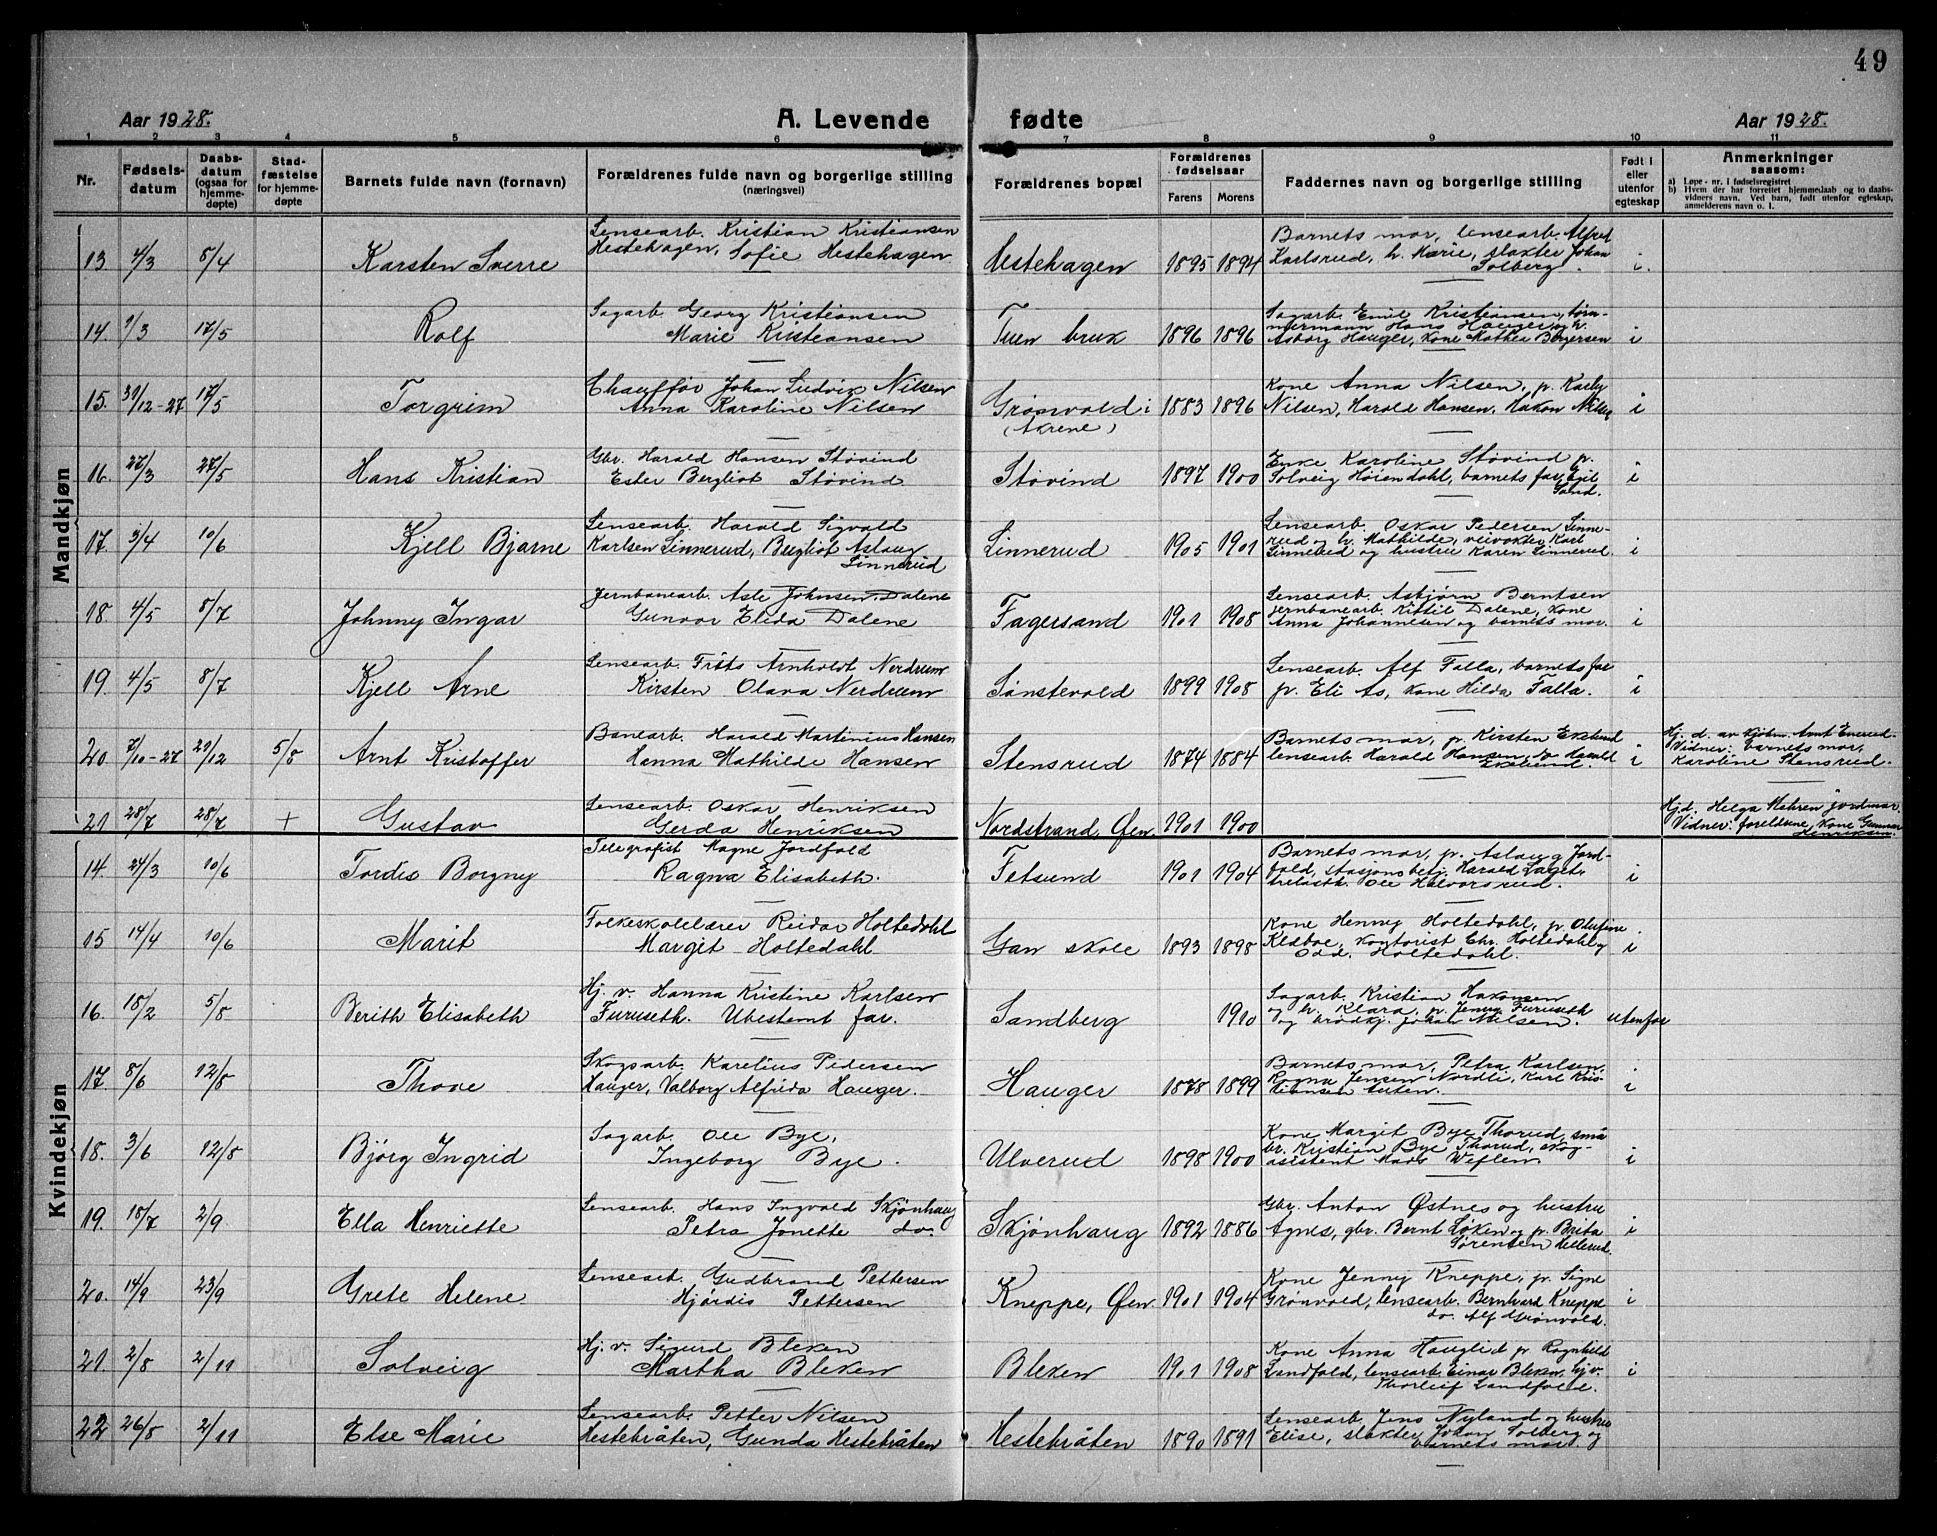 49
Aar 1928. A. Levende fødte Aar 1928.
1 2 3 4 5 6 7 8 9 10 11
Nr. Fødselsdatum Daabsdatum (ogsaa for hjemmedøpte) Stadfæstelse for hjemmedøpte Barnets fulde navn (fornavn) Forældrenes fulde navn og borgerlige stilling (næringsvei) Forældrenes bopæl Forældrenes fødselsaar Farens Morens Faddernes navn og borgerlige stilling Født i eller utenfor egteskap Anmerkninger saasom:
a) Løpe-nr. i fødselsregistret
b) Hvem der har forrettet hjemmedaab og to daabsvidners navn. Ved barn, født utenfor egteskap, anmelderens navn o. l.
Mandkjøn
13 4/3 8/4 Karsten Sverre Lensearb. Kristian Kristiansen Hestehagen, Sofie Hestehagen Hestehagen 1895 1894 Barnets mor, lensearb. Alfred Karlsrud, h. Marie, slakter Johan Solberg. i.
14. 1/3 17/5 Rolf Sagarb. Georg Kristiansen Marie Kristiansen Tuen bruk 1896 1896 Sagarb. Emil Kristiansen, tømmermann Hans Hauger og h. Asborg Hauger, kone Mathea Borgersen i
15. 31/12-27 17/5 Torgrim Chauffør Johan Ludvik Nilsen Anna Karoline Nilsen Grønvold i (Akrene) 1883 1896 Kone Anna Nilsen, p. Karly Nilsen, Harald Hansen, Hakon Nilsen i
16. 27/3 27/5 Hans Kristian Gbr. Harald Hansen Støvind Ester Bergliot Støvind Støvind 1897 1900 Enke Karoline Støvind p. Solveig Høiendahl, barnets far, Egil Sand. i
17. 3/4 10/6 Kjell Bjarne Lensearb. Harald Sigvald Karlsen Linnerud, Bergliot Aslaug Linnerud Linnerud 1905 1901 Lensearb. Oskar Pedersen Linnerud og h. Mathilde, veivokter Karl Linnerud og hustru Karen Linnerud. i
18 4/5 8/7 Johnny Ingar Jernbanearb. Asle Johnsen Dalene Gunvor Elida Dalene Fagersand 1901 1908 Lensearb. Asbjørn Berntsen jernbanearb. Kittil Dalene, kone Anna Johannesen og barnets mor. i
19. 4/5 8/7 Kjell Arne Lensearb. Frits Arnholdt Nerdrum Kirsten Olava Nerdrum Sønstevold 1899 1908 Lensearb. Alf Falla, barnets far p. Eli As, kone Hilda Falla. i
20. 7/10-27 21/12 5/8 Arnt Kristoffer Banearb. Harald Martinius Hansen Hanna Mathilde Hansen Stensrud 1874 1884 Barnets mor, p. Kirsten Eklund lensearb. Harald Hansen, do Harald Eklund. i Hj. d. av kjøbm. Arnt Enerud. Vidner: barnets mor, Karoline Stensrud.
21 28/7 28/7 + Gustav Lensearb. Oskar Henriksen Gerda Henriksen Nordstrand, Øen 1901 1900 Hj. d. Helga Mahren jordmor Vidner: foreldrene, kone Gunvor Henriksen.
Kvindekjøn
14 24/3 10/6 Tordis Borgny Telegrafist Magne Jordfald Ragna Elisabeth. Fetsund 1901 1904 Barnets mor, p. Aslaug Jordfald, stasjonsbetj. Harald Laget, Ole Halvorsrud. i
15 14/4 10/6 Marit Folkeskolelærer Reidar Holtedahl Margit Holtedahl Gan skole 1893 1898 Kone Henny Holtedahl, p. Olufine Klæboe, kontorist Chr. Holtedahl og Odd. Holtedahl. i
16. 18/2 5/8 Berith Elisabeth Hj. v. Hanna Kristine Karlsen Furuseth. Ubestemt far. Sandberg 1910 Sagarb. Kristian Hakonsen og h. Klara, p. Jenny Furuseth og brødkj. Johan Nilsen. utenfor
17. 8/6 12/8 Thove Skogsarb. Karelius Pedersen Hauger, Valborg Alfrida Hauger. Hauger 1878 1899 Barnets mor, Petra Karlsen Ragna Jensen Nordli, Karl Kristiansen Auten. i
18. 3/6 12/8 Bjørg Ingrid Sagarb. Ole Bye, Ingeborg Bye. Ulverud 1898 1900 Kone Margit Bye Thorud, småbr. Kristian Bye Thorud, skogassistent Mads Weflen. i
19. 18/7 2/9 Ella Henriette Lensearb. Hans Ingvald Skjønhaug Petra Jonette do. Skjønhaug 1892 1886 Gbr. Anton Østnes og hustru Agnes, gbr. Bernt Løken og p. Brita Sørensen Hellerud. i
20. 14/9 23/9 Grete Helene. Lensearb. Gudbrand Pettersen Hjørdis Pettersen Kneppe, Øen. 1901 1904 Kone Jenny Kneppe, p. Signe Grønvold, lensearb. Bernhard Kneppe do. Alf Grønvold. i
21. 2/8 2/11 Solveig Hj. v. Sigurd Bleken Martha Bleken Bleken 1901 1908 Kone Anna Hauglid p. Ragnhild Landfald, lensearb. Einar Bleken, hj. v. Thorleif Landfald. i
22 26/8 2/11 Else Marie Lensearb. Petter Nilsen Hestebråten, Gunda Hestebråten Hestebråten 1890 1891 Lensearb. Jens Nyland og hustru Elise, slakter Johan Solberg og barnets mor.